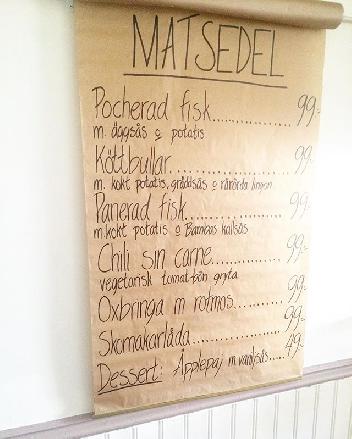 MATSEDEL
Pocherad fisk.............. 99:-
m. äggsås o potatis
Köttbullar................... 99:-
m. kokt potatis, gräddsås o rårörda lingon
Panerad fisk................ 99:-
m. kokt potatis o kallsås
Chili sin carne............. 99:-
vegetarisk tomat-bön gryta
Oxbringa m rotmos........ 99:-
Skomakarlåda............... 99:-
Dessert: Applepaj m vaniljsås..... 49:-